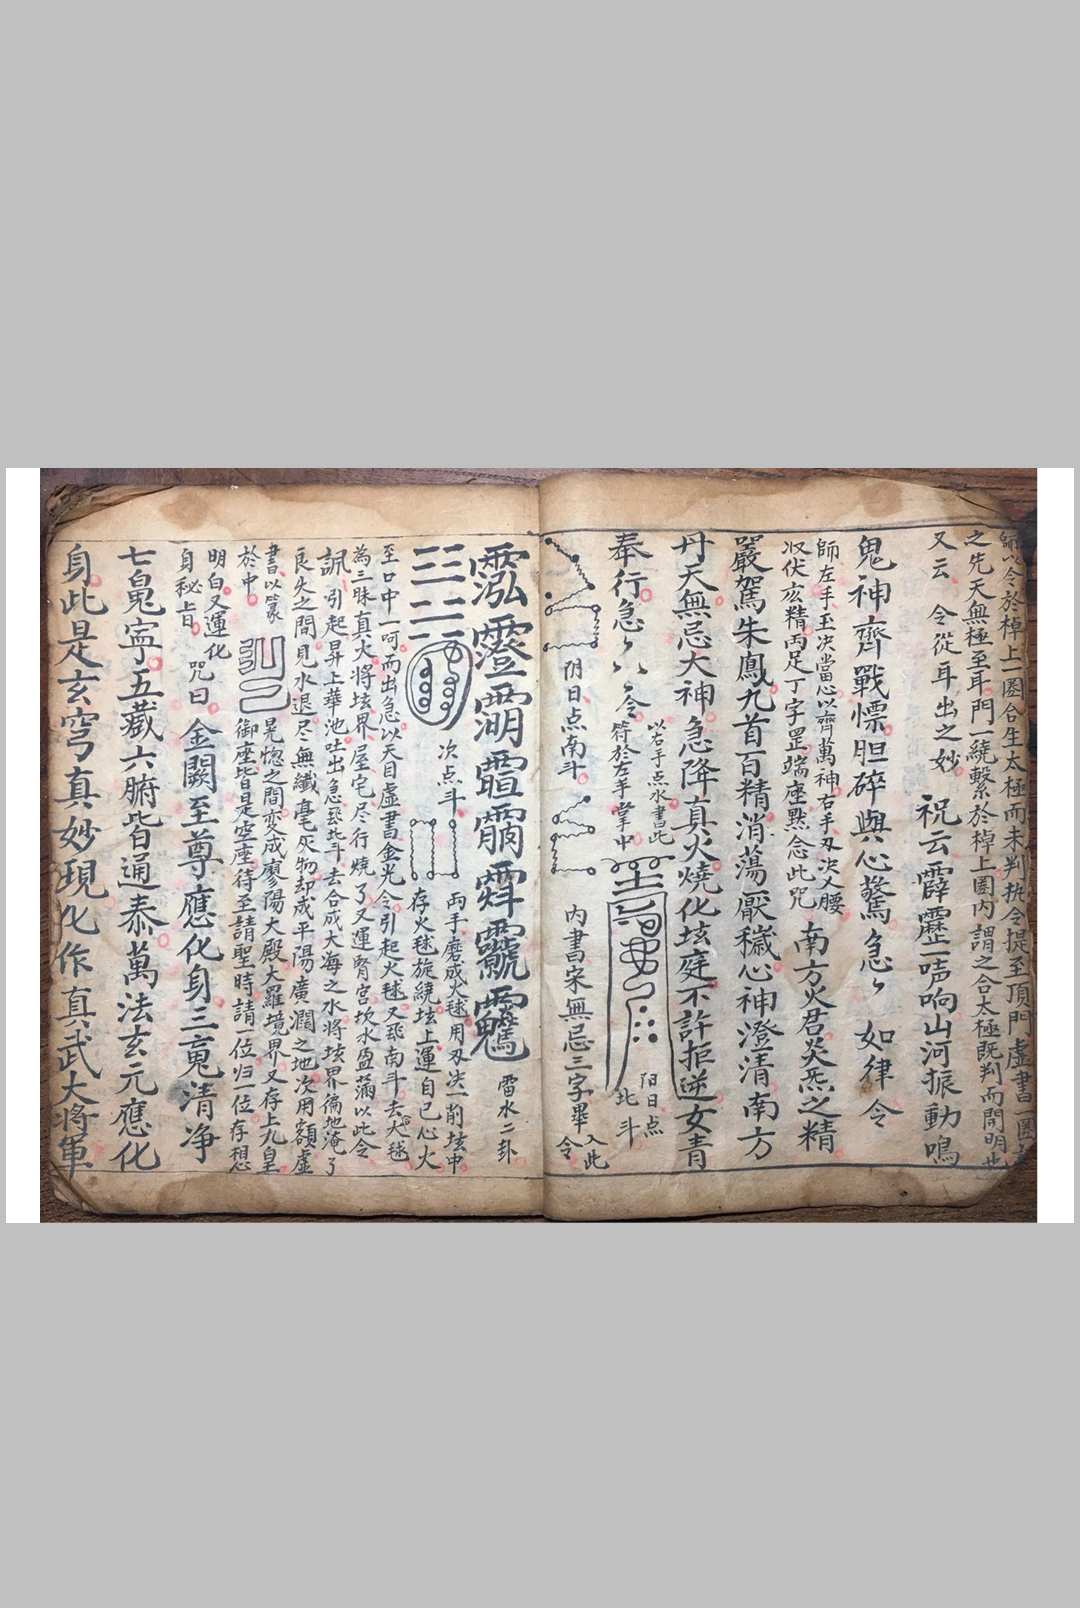 師以令於棹上一圏合生太極而未判执令提至頂門虛書一圏
之先天無極至耳門一繞繫於棹上圏内謂之合太極既判而開明
又云 令從耳出之妙 祝云霹靂一声响山河振動鳴
鬼神齊戰慄胆碎與心驚急〻如律令
師左手玉决當心以齊萬神右手刄决乂腰
収伏玄精兩足丁字罡端座默念此咒 南方火君炎炁之精
嚴駕朱鳳九首百精消蕩厭穢心神澄清南方
丹天無忌大神急降真火燒化垓庭不許拒逆女青
奉行急〻〻令 以右手点水書此
符於左手掌中
阳日点
北斗
阴日点南斗
内書宋無忌三字畢
入此
令
雷水二卦
次点斗
両手磨成火毬用刄决一削垓中
存火毬旋繞垓上運自己心火
至口中一呵而出急以天目虛書金光令引起火毬又飛南斗去大毬
為三昧真火將垓界屋宅尽行燒了又運腎宫坎水盈滿以此令
訊引起昇上華池吐出急飛北斗去合成大海之水將垓界徧地淹了
良久之間見水退尽無纖毫灰物却成平陽廣濶之地次用額虛
書以篆 晃惚之間变成廖陽大殿大羅境界又存上九皇
於中 御座皆是空座待至請聖一時請一位归一位存想
明白又運化
身秘旨 咒曰 金闕至尊應化身三魂清净
七鬼寧五藏六腑皆通泰萬法玄元應化
身此是玄穹真妙現化作真武大將軍